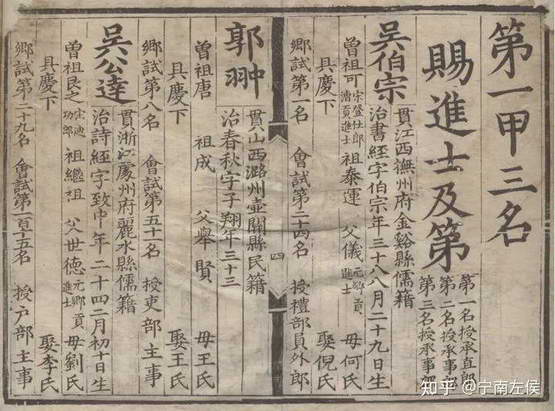 第一甲三名
賜進士及第
第一名授承直郎
第二名授承事郎
第三名授承事郎
吳伯宗
貫江西撫州府金谿縣儒籍
治書經字伯宗年三十八八月二十九日生
曾祖可
宋登仕郎
漕貢進士
祖泰運
父儀
元鄉貢
進士
母何氏
具慶下
娶倪氏
鄉試第一名
會試第二十四名
授禮部員外郎
四
郭翀
貫山西潞州壺關縣民籍
治春秋字子翔年三十三
曾祖唐
祖成
父舉賢
母王氏
具慶下
娶王氏
鄉試第八名
會試第五十名
授吏部主事
吳公達
貫浙江處州府麗水縣儒籍
治詩經字致中年二十四二月初十日生
曾祖良之
功郎
祖繼祖
父世德
元鄉貢
進士
母劉氏
具慶下
娶李氏
鄉試第二十九名
會試第一百十五名
授户部主事
知乎 @宁南左侯